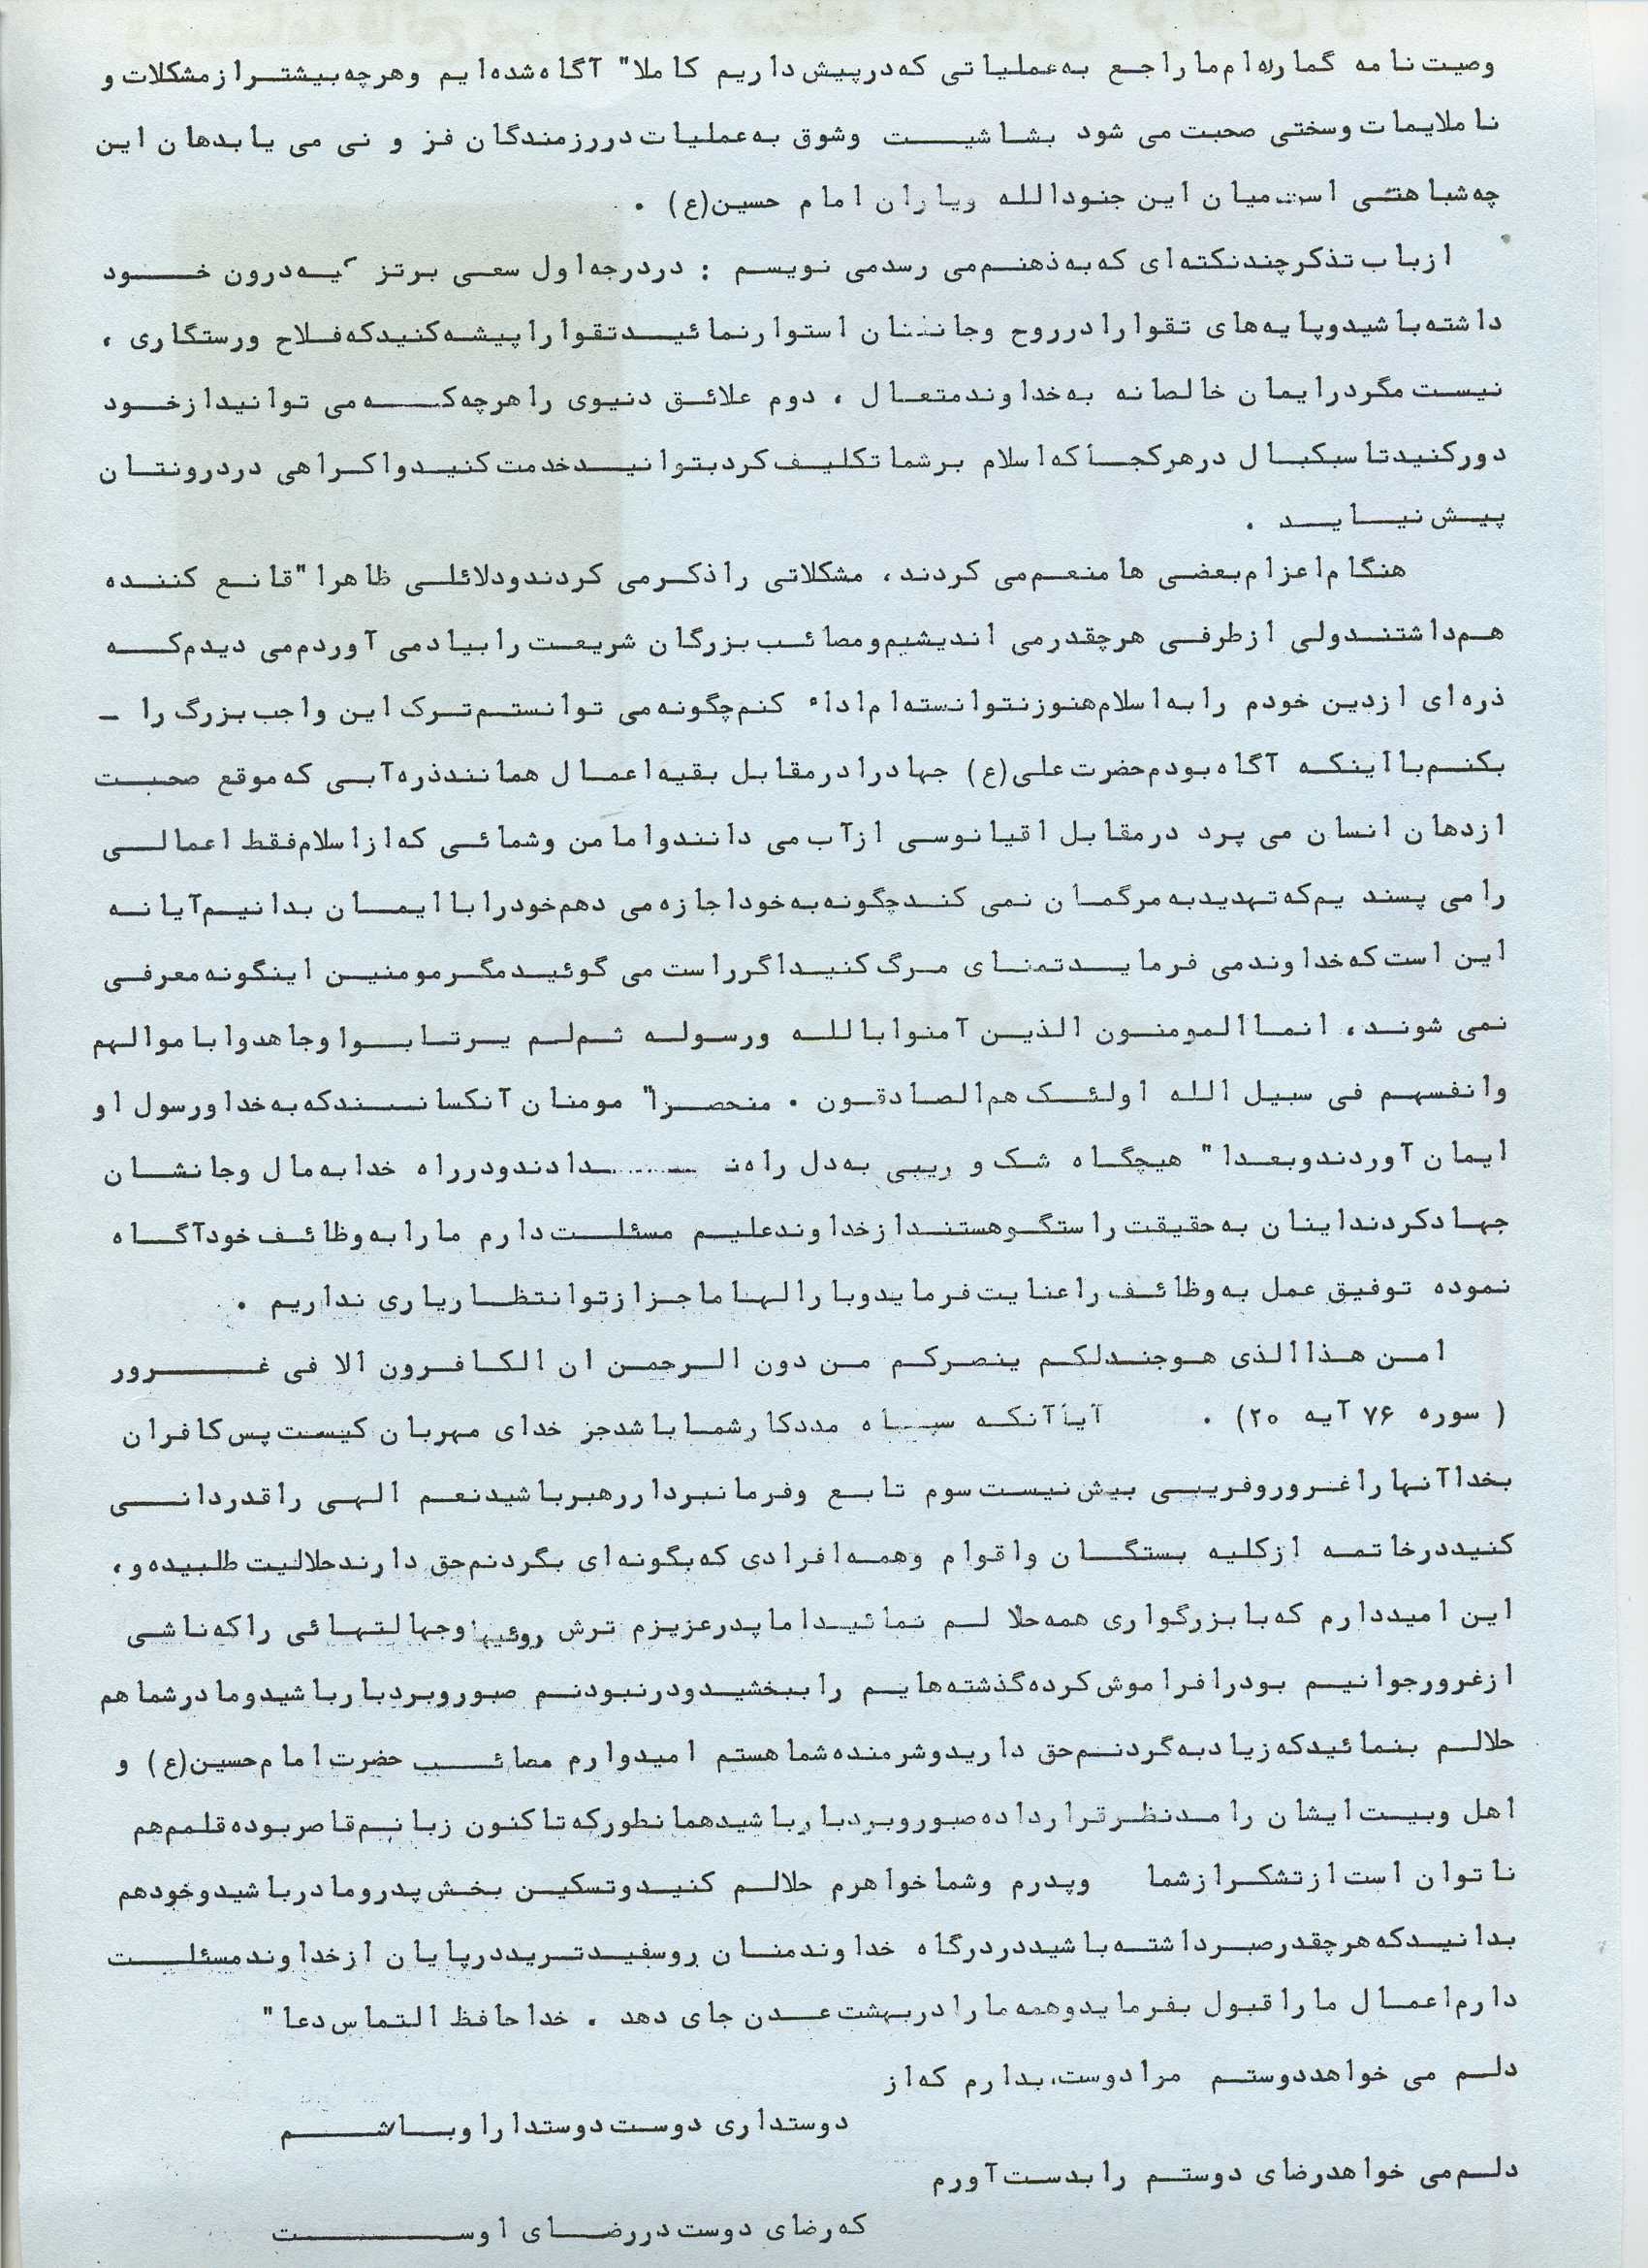 وصیت نامه گمارده‌ام ما راجع به عملیاتی که در پیش داریم کاملا" آگاه شده‌ایم و هر چه بیشتر از مشکلات و
ناملایمات و سختی صحبت می شود بشاشیت و شوق به عملیات در رزمندگان فزونی می یابد هان این
چه شباهتی است میان این جنودالله ویاران امام حسین(ع) .
از باب تذکر چند نکته‌ای که به ذهنم می رسد می نویسم : در درجه اول سعی بر تزکیه درون خود
داشته باشید و پایه‌های تقوا را در روح و جانتان استوار نمائید تقوا را پیشه کنید که فلاح و رستگاری ،
نیست مگر در ایمان خالصانه به خداوند متعال ، دوم علائق دنیوی را هر چه که می توانید از خود
دور کنید تا سبکبال در هر کجا که اسلام بر شما تکلیف کرد بتوانید خدمت کنید و اکراهی در درونتان
پیش نیاید .
هنگام اعزام بعضی ها منعم می کردند، مشکلاتی را ذکر می کردند و دلائلی ظاهرا" قانع کننده
هم داشتند ولی از طرفی هر چقدر می اندیشیم و مصائب بزرگان شریعت را بیاد می آوردم می دیدم که
ذره‌ای از دین خودم را به اسلام هنوز نتوانسته‌ام اداء کنم چگونه می توانستم ترک این واجب بزرگ را –
بکنم با اینکه آگاه بودم حضرت علی(ع) جهاد را در مقابل بقیه اعمال همانند ذره آبی که موقع صحبت
از دهان انسان می پرد در مقابل اقیانوسی از آب می دانند و اما من و شمائی که از اسلام فقط اعمالی
را می پسندیم که تهدید به مرگمان نمی کند چگونه به خود اجازه می دهم خود را با ایمان بدانیم آیا نه
این است که خداوند می فرماید تمنای مرگ کنید اگر راست می گوئید مگر مومنین اینگونه معرفی
نمی شوند، انما المومنون الذین آمنوا بالله ورسوله ثم لم یرتابوا وجاهدوا باموالهم
وانفسهم فی سبیل الله اولئک هم الصادقون . منحصرا" مومنان آنکسانند که به خدا و رسول او
ایمان آوردند و بعدا" هیچگاه شک و ریبی به دل راه ندادند و در راه خدا به مال و جانشان
جهاد کردند اینان به حقیقت راستگو هستند از خداوند علیم مسئلت دارم ما را به وظائف خود آگاه
نموده توفیق عمل به وظائف را عنایت فرماید و بار الها ما جز از تو انتظار یاری نداریم .
امن هذا الذی هو جند لکم ینصرکم من دون الرحمن ان الکافرون الا فی غرور
( سوره ۷۶ آیه ۲۰) . آیا آنکه سپاه مددکار شما باشد جز خدای مهربان کیست پس کافران
بخدا آنها را غرور و فریبی بیش نیست سوم تابع و فرمانبردار رهبر باشید نعم الهی را قدردانی
کنید در خاتمه از کلیه بستگان و اقوام و همه افرادی که بگونه‌ای بگردنم حق دارند حلالیت طلبیده و،
این امید دارم که با بزرگواری همه حلالم نمائید اما پدر عزیزم ترش روئیها و جهالتهائی را که ناشی
از غرور جوانیم بود را فراموش کرده گذشته‌هایم را ببخشید و در نبودنم صبور و بردبار باشید و مادر شما هم
حلالم بنمائید که زیاد به گردنم حق دارید و شرمنده شما هستم امیدوارم مصائب حضرت امام حسین(ع) و
اهل و بیت ایشان را مد نظر قرار داده صبور و بردبار باشید همانطور که تا کنون زبانم قاصر بوده قلمم هم
ناتوان است از تشکر از شما وپدرم وشما خواهرم حلالم کنید و تسکین بخش پدر و مادر باشید و خود هم
بدانید که هر چقدر صبر داشته باشید در درگاه خداوند منان روسفیدترید در پایان از خداوند مسئلت
دارم اعمال ما را قبول بفرماید و همه ما را در بهشت عدن جای دهد . خداحافظ التماس دعا"
دلم می خواهد دوستم مرا دوست، بدارم که از
دوستداری دوست دوستدار او باشم
دلم می خواهد رضای دوستم را بدست آورم
که رضای دوست در رضای اوست